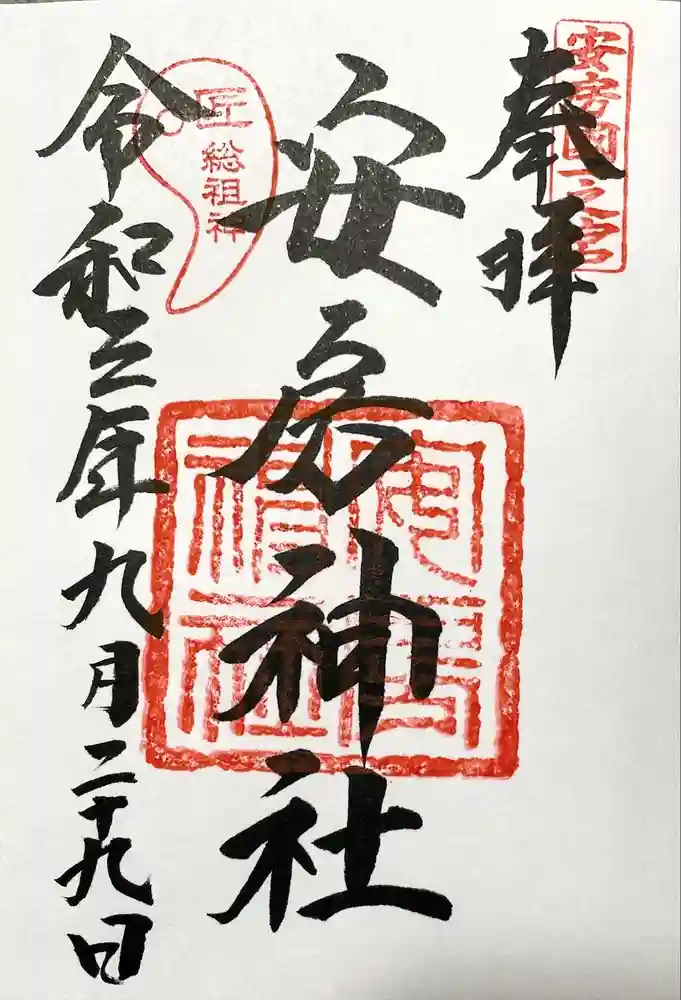 安房國一之宮
奉拝
安房神社
安房神社
匠
総祖神
令和三年九月二十九日